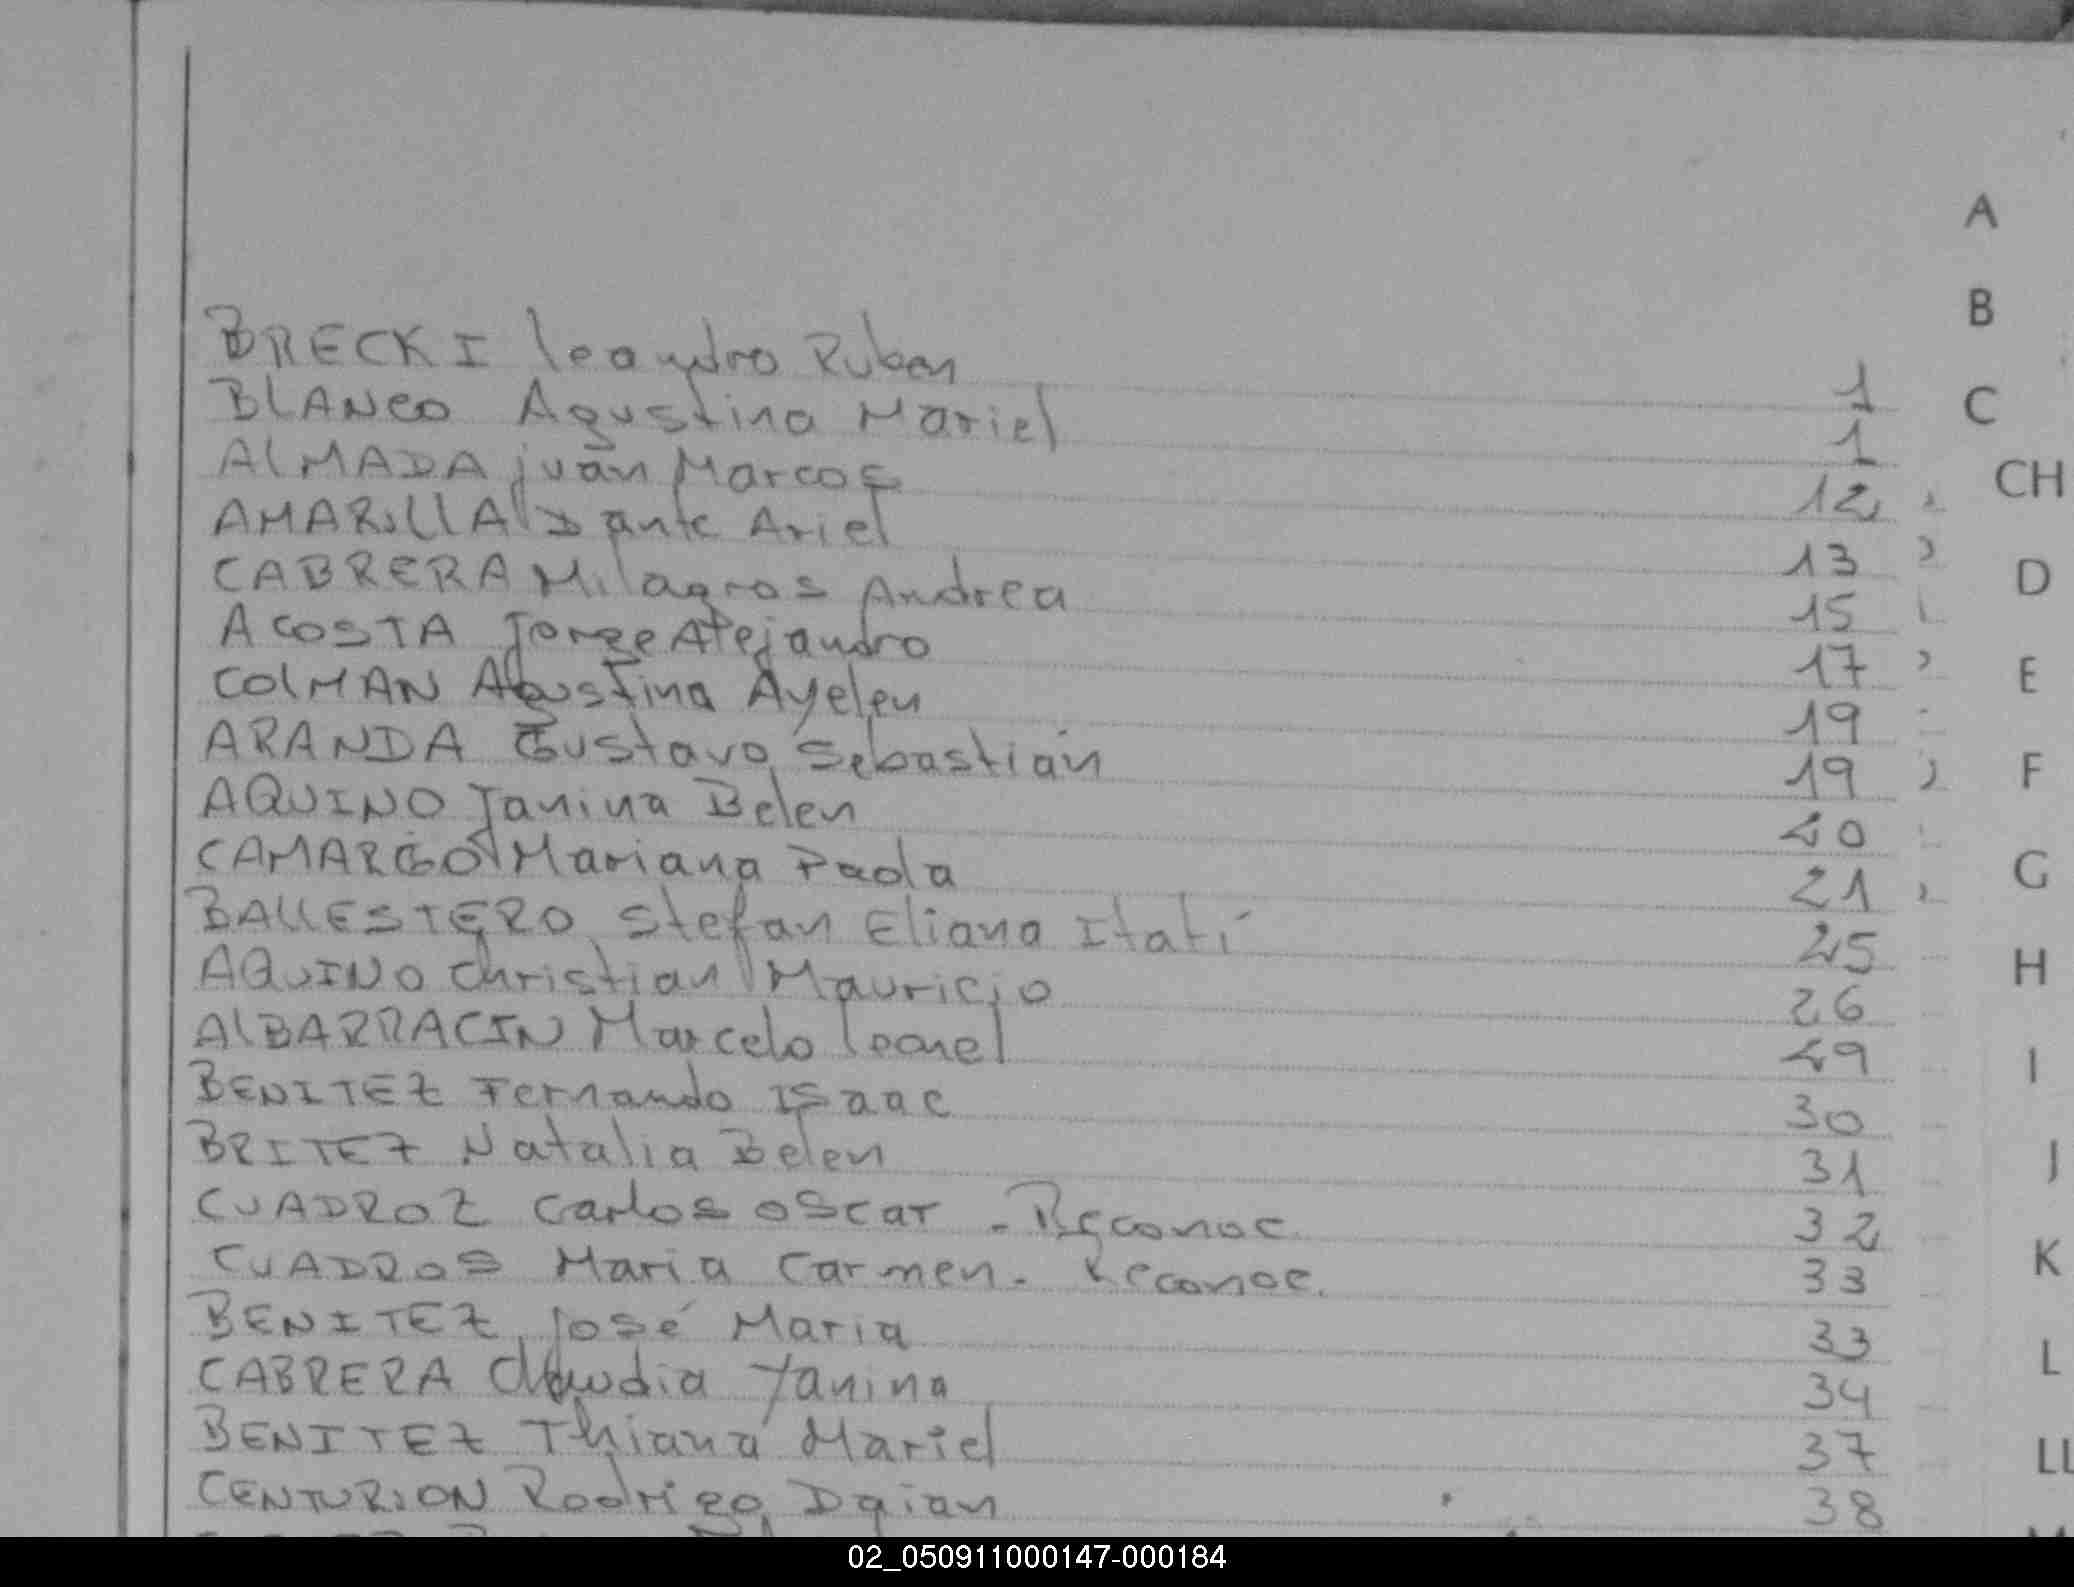 BRECKI Leandro Ruben 1
BLANCO Agustina Mariel 1
ALMADA juan Marcos 12
AMARILLA Dante Ariel 13
CABRERA Milagros Andrea 15
ACOSTA Jorge Alejandro 17
COLMAN Agustina Ayelen 19
ARANDA Gustavo Sebastián 19
AQUINO Janina Belen 20
CAMARGO Mariana Paola 21
BALLESTERO Stefan Eliana Itatí 25
AQUINO Christian Mauricio 26
ALBARRACIN Marcelo Leonel 29
BENITEZ Fernando Isaac 30
BRITEZ Natalia Belen 31
CUADROZ Carlos Oscar - Reconoc. 32
CUADROS Maria Carmen - Reconoc. 33
BENITEZ José Maria 33
CABRERA Claudia Yanina 34
BENITEZ Thiana Mariel 37
CENTURION Rodrigo Daian 38
A
B
C
CH
D
E
F
G
H
I
J
K
L
LL
02_050911000147-000184